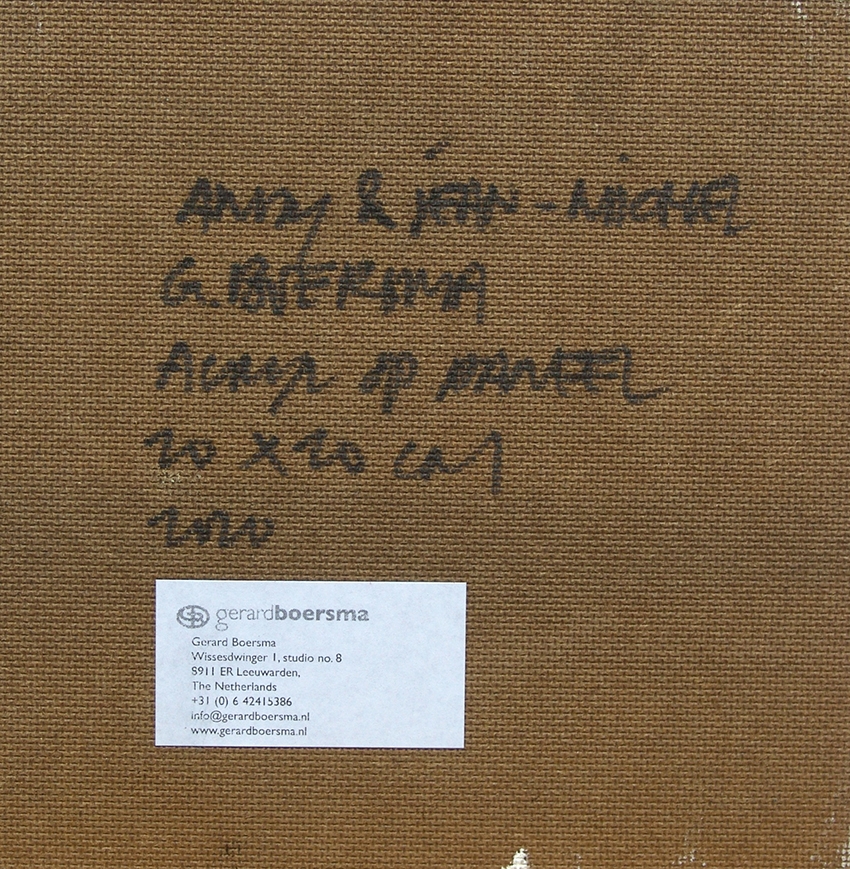 Andy & JEAN-MICHEL
G. BOERSMA
ACRYL OP PANEEL
20 X 20 cm
2020
gerardboersma
Gerard Boersma
Wissesdwinger 1, studio no. 8
8911 ER Leeuwarden,
The Netherlands
+31 (0) 6 42415386
info@gerardboersma.nl
www.gerardboersma.nl